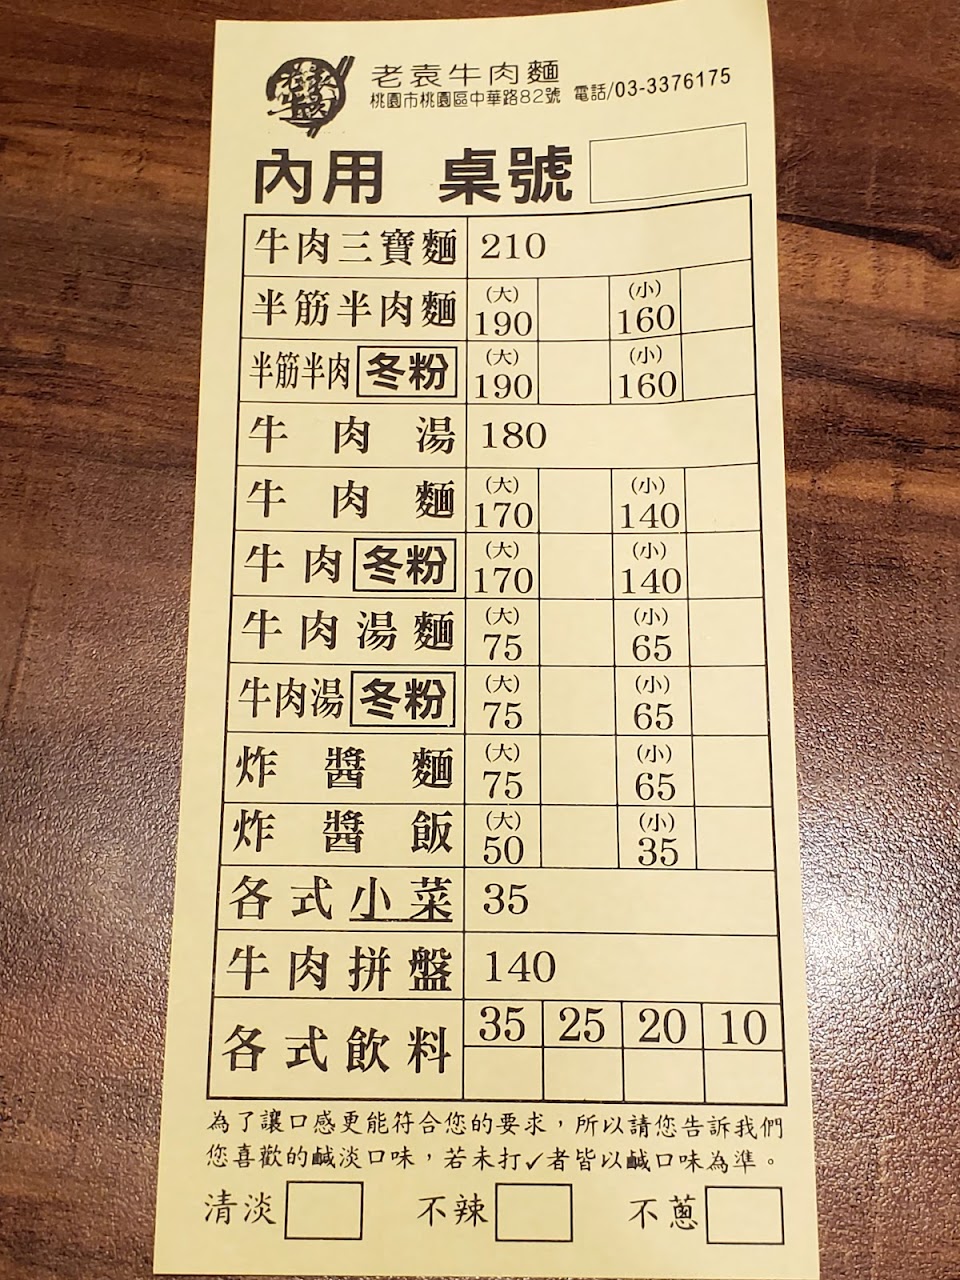 老袁牛肉麵
桃園市桃園區中華路82號 電話/03-3376175
內用 桌號
牛肉三寶麵 210
半筋半肉麵 (大) 190 (小) 160
半筋半肉 冬粉 (大) 190 (小) 160
牛肉湯 180
牛肉麵 (大) 170 (小) 140
牛肉 冬粉 (大) 170 (小) 140
牛肉湯麵 (大) 75 (小) 65
牛肉湯 冬粉 (大) 75 (小) 65
炸醬麵 (大) 75 (小) 65
炸醬飯 (大) 50 (小) 35
各式小菜 35
牛肉拼盤 140
各式飲料 35 25 20 10
為了讓口感更能符合您的要求，所以請您告訴我們
您喜歡的鹹淡口味，若未打✓者皆以鹹口味為準。
清淡 不辣 不蔥